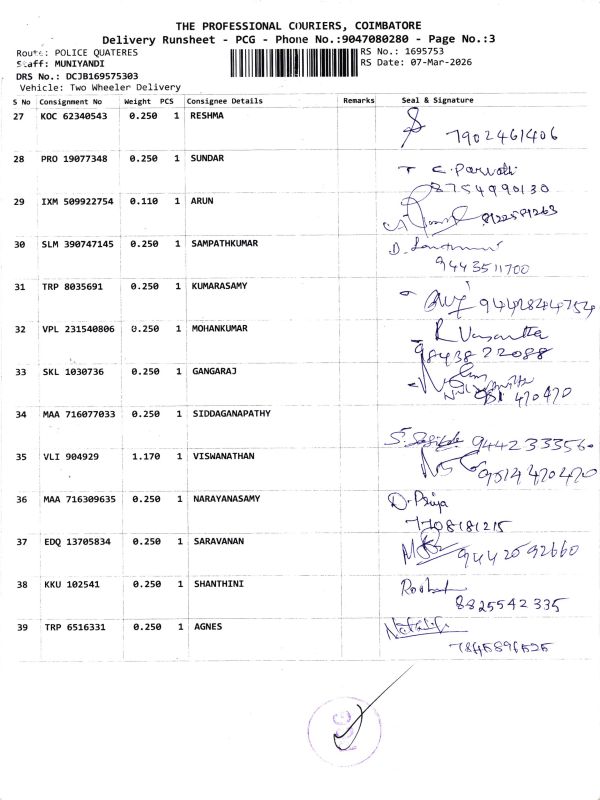 THE PROFESSIONAL COURIERS, COIMBATORE
Delivery Runsheet - PCG - Phone No.:9047080280 - Page No.:3
Route: POLICE QUATERES RS No.: 1695753
Staff: MUNIYANDI RS Date: 07-Mar-2026
DRS No.: DCJB169575303
Vehicle: Two Wheeler Delivery
S No Consignment No Weight PCS Consignee Details Remarks Seal & Signature
27 KOC 62340543 0.250 1 RESHMA
7902461406
28 PRO 19077348 0.250 1 SUNDAR
C. Parvathi
8754990130
29 IXM 509922754 0.110 1 ARUN
30 SLM 390747145 0.250 1 SAMPATHKUMAR
9443511700
31 TRP 8035691 0.250 1 KUMARASAMY
32 VPL 231540806 0.250 1 MOHANKUMAR
R Vasantha
9843822088
33 SKL 1030736 0.250 1 GANGARAJ
34 MAA 716077033 0.250 1 SIDDAGANAPATHY
9442333560
35 VLI 904929 1.170 1 VISWANATHAN
9514470470
36 MAA 716309635 0.250 1 NARAYANASAMY
D. Priya
7708181215
37 EDQ 13705834 0.250 1 SARAVANAN
9442592660
38 KKU 102541 0.250 1 SHANTHINI
8825542335
39 TRP 6516331 0.250 1 AGNES